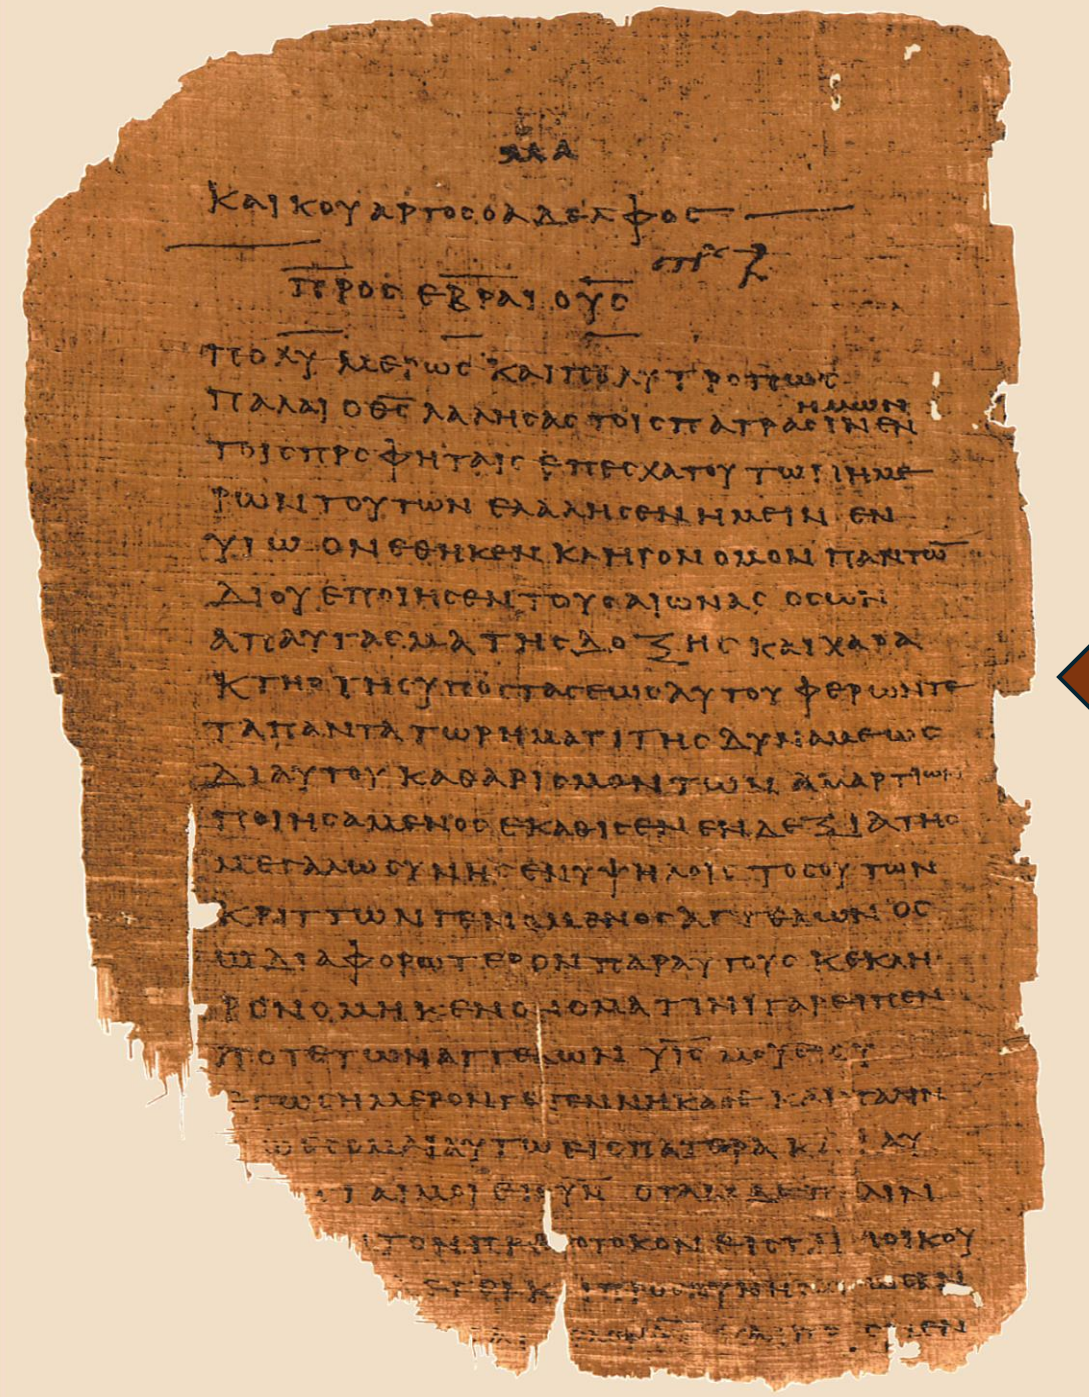 ΜΑ
ΚΑΙ ΚΟΥΑΡΤΟΣ Ο ΑΔΕΛΦΟΣ
ΠΡΟΣ ΕΒΡΑΙΟΥΣ
ΠΟΛΥΜΕΡΩΣ ΚΑΙ ΠΟΛΥΤΡΟΠΩΣ
ΗΜΩΝ
ΠΑΛΑΙ Ο Θ̅Σ̅ ΛΑΛΗΣΑΣ ΤΟΙΣ ΠΑΤΡΑΣΙΝ ΕΝ
ΤΟΙΣ ΠΡΟΦΗΤΑΙΣ ΕΠ ΕΣΧΑΤΟΥ ΤΩΝ ΗΜΕ
ΡΩΝ ΤΟΥΤΩΝ ΕΛΑΛΗΣΕΝ ΗΜΕΙΝ ΕΝ
ΥΙΩ ΟΝ ΕΘΗΚΕΝ ΚΛΗΡΟΝΟΜΟΝ ΠΑΝΤΩ̅
ΔΙ ΟΥ ΕΠΟΙΗΣΕΝ ΤΟΥΣ ΑΙΩΝΑΣ ΟΣ ΩΝ
ΑΠΑΥΓΑΣΜΑ ΤΗΣ ΔΟΞΗΣ ΚΑΙ ΧΑΡΑ
ΚΤΗΡ ΤΗΣ ΥΠΟΣΤΑΣΕΩΣ ΑΥΤΟΥ ΦΕΡΩΝ ΤΕ
ΤΑ ΠΑΝΤΑ ΤΩ ΡΗΜΑΤΙ ΤΗΣ ΔΥΝΑΜΕΩΣ
ΔΙ ΑΥΤΟΥ ΚΑΘΑΡΙΣΜΟΝ ΤΩΝ ΑΜΑΡΤΙΩΝ
ΠΟΙΗΣΑΜΕΝΟΣ ΕΚΑΘΙΣΕΝ ΕΝ ΔΕΞΙΑ ΤΗΣ
ΜΕΓΑΛΩΣΥΝΗΣ ΕΝ ΥΨΗΛΟΙΣ ΤΟΣΟΥΤΩΝ
ΚΡΙΤΤΩΝ ΓΕΝΟΜΕΝΟΣ ΑΓΓΕΛΩΝ ΟΣ
Ω ΔΙΑΦΟΡΩΤΕΡΟΝ ΠΑΡ ΑΥΤΟΥΣ ΚΕΚΛΗ
ΡΟΝΟΜΗΚΕΝ ΟΝΟΜΑ ΤΙΝΙ ΓΑΡ ΕΙΠΕΝ
ΠΟΤΕ ΤΩΝ ΑΓΓΕΛΩΝ Υ̅Ι̅Σ̅ ΜΟΥ ΕΙ ΣΥ
ΕΓΩ ΣΗΜΕΡΟΝ ΓΕΓΕΝΝΗΚΑ ΣΕ ΚΑΙ ΠΑΛΙΝ
ΕΣΟΜΑΙ ΑΥΤΩ ΕΙΣ ΠΑΤΕΡΑ Κ ΑΥ
ΤΑΙ ΜΟΙ ΕΙΣ Υ̅Ν̅ ΟΤΑΝ ΔΕ ΠΑΛΙΝ
ΤΟΝ ΠΡΩΤΟΤΟΚΟΝ ΕΙΣ ΤΗΝ ΟΙΚΟΥ